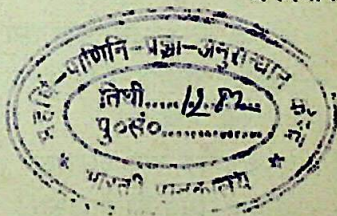 महर्षि-पाणिनि-प्रज्ञा-अनुसन्धान
तिथी.....12.82....
पु०सं०..............
* भारती *